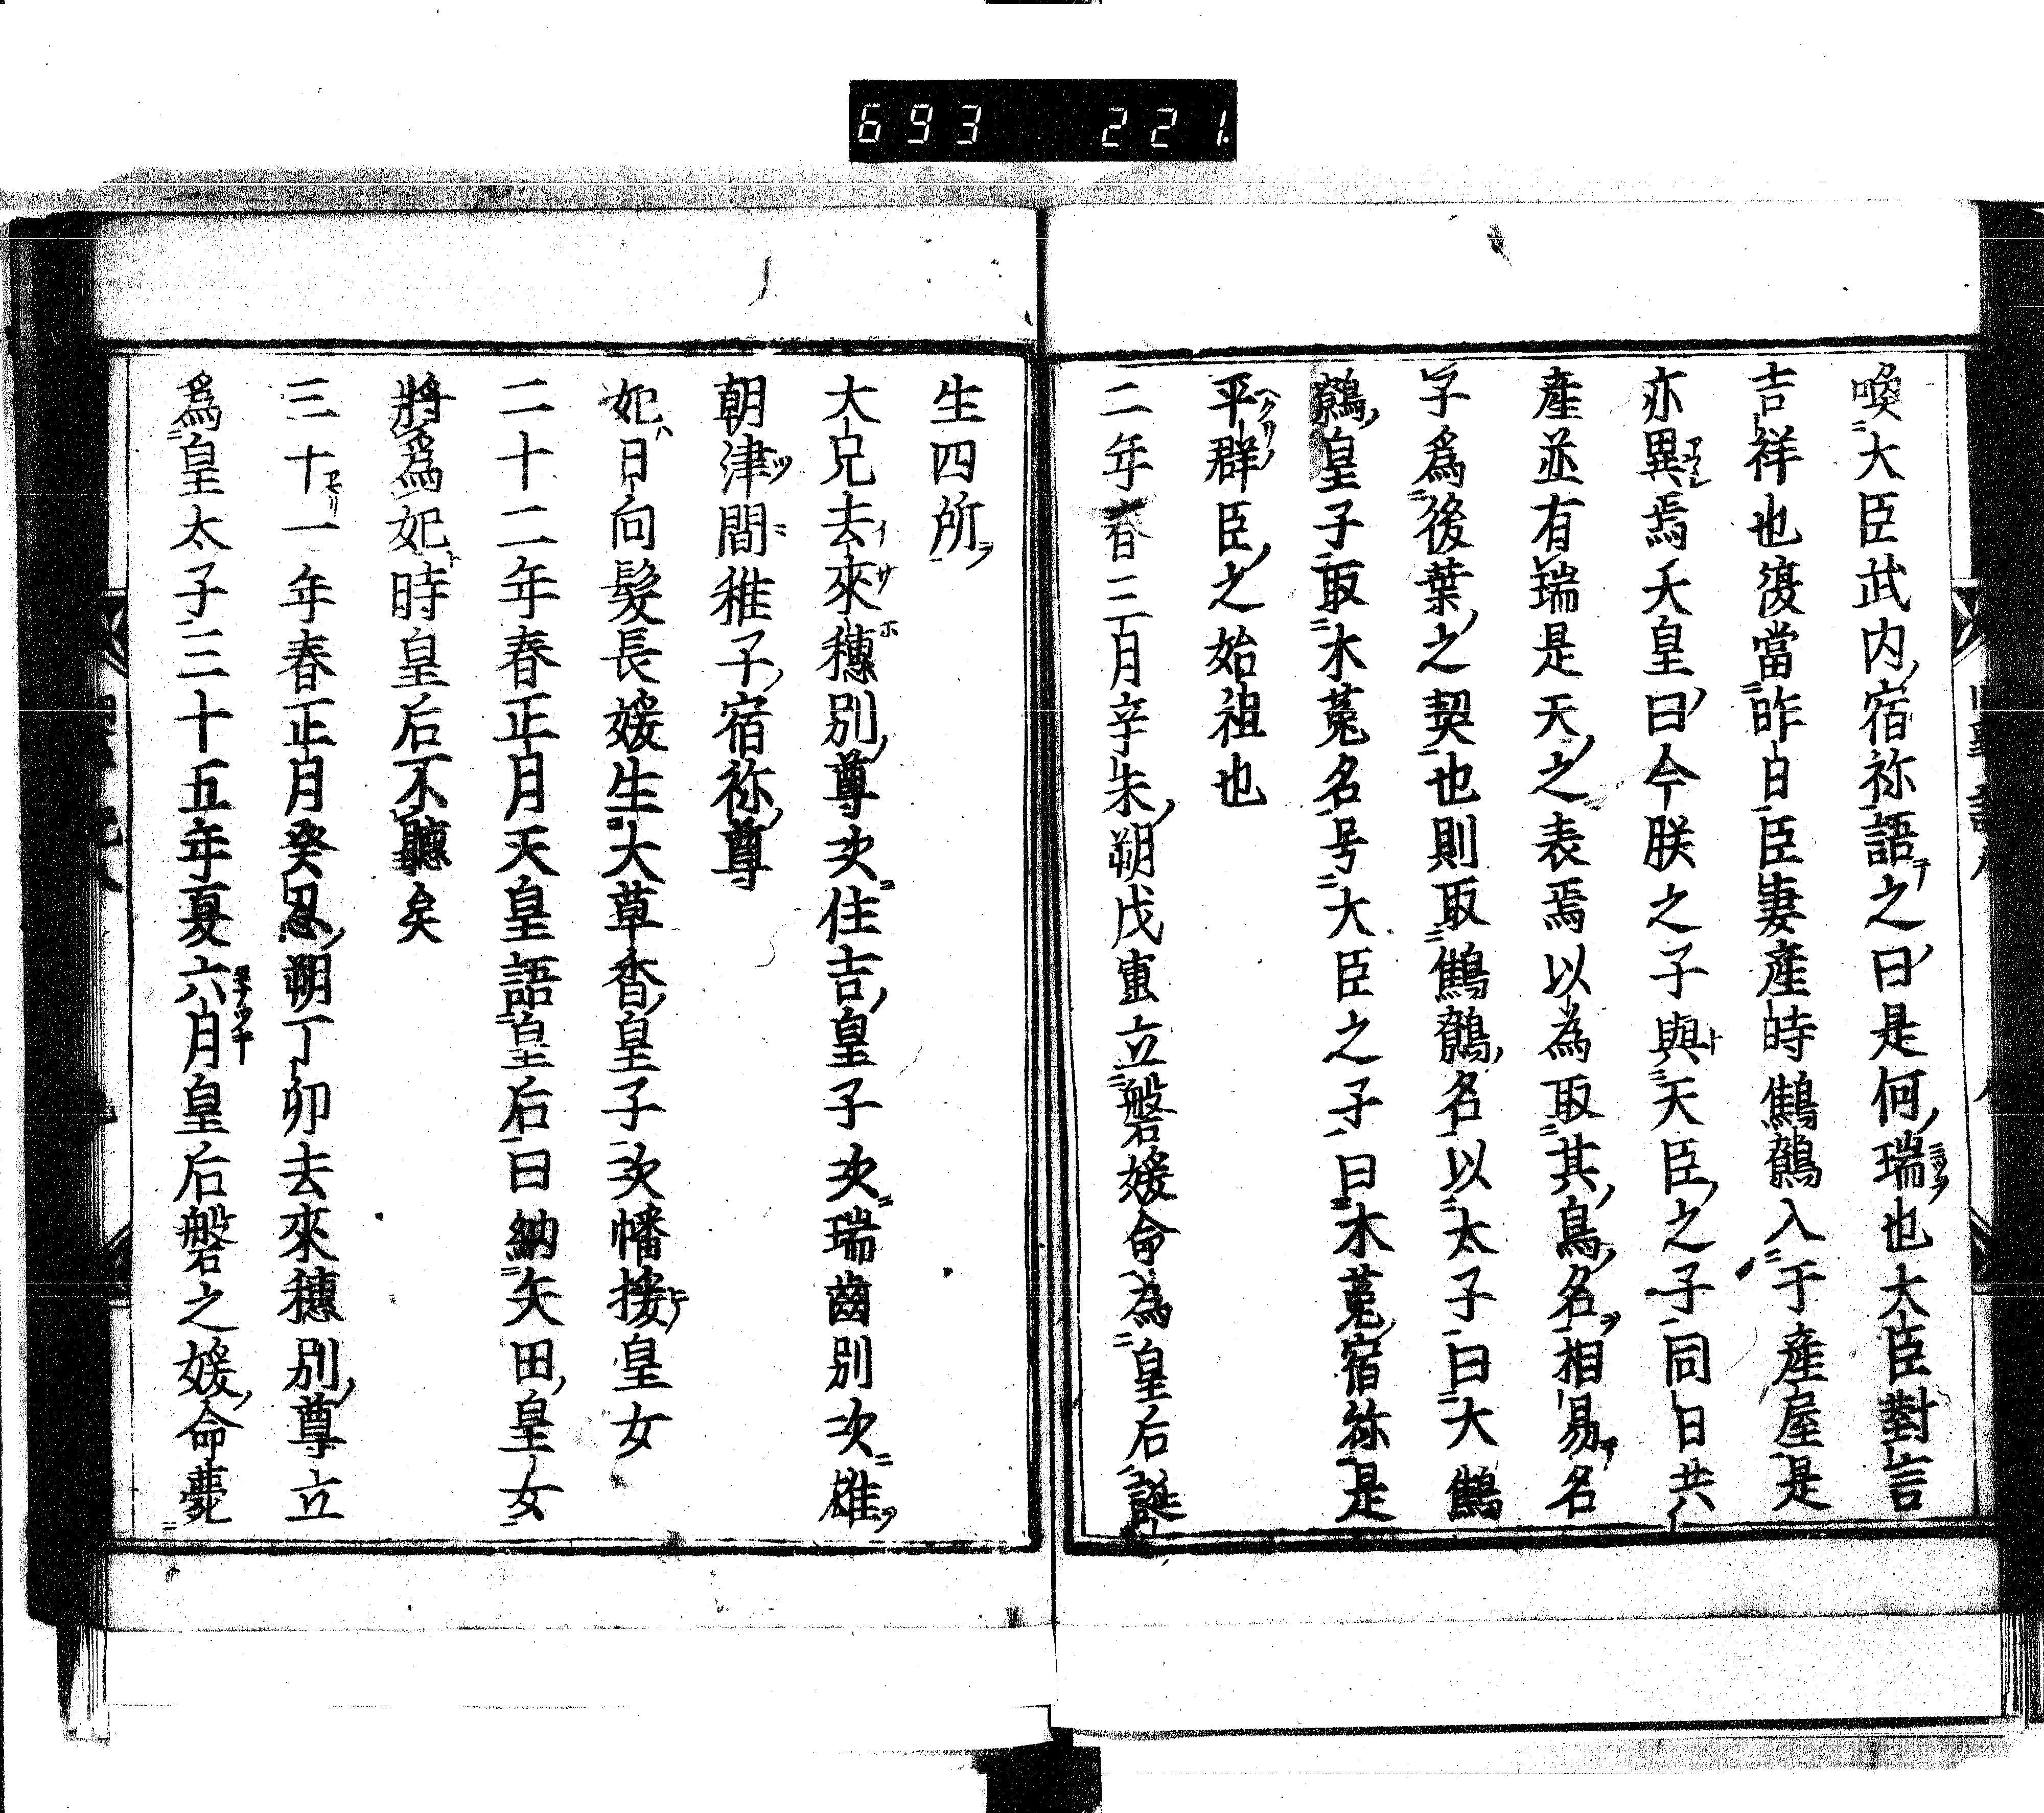 693 221
喚大臣武内宿祢語之曰是何瑞也大臣對言
吉祥也復當昨日臣妻產時鷦鷯入于產屋是
亦異焉天皇曰今朕之子與天臣之子同日共
產並有瑞是天之表焉以為取其鳥名相易名
子爲後葉之契也則取鷦鷯名以太子曰大鷦
鷯皇子取木菟名号大臣之子曰木菟宿祢是
平群臣之始祖也
二年春三月辛朱朔戊寅立磐媛命為皇后誕
生四所
大兄去來穗別尊次住吉皇子次瑞齒別次雄
朝津間稚子宿祢尊
妃日向髮長媛生大草香皇子次幡捘皇女
二十二年春正月天皇語皇后曰納矢田皇女
將爲妃時皇后不聽矣
三十一年春正月癸忍朔丁卯去來穗別尊立
爲皇太子三十五年夏六月皇后磐之媛命薨